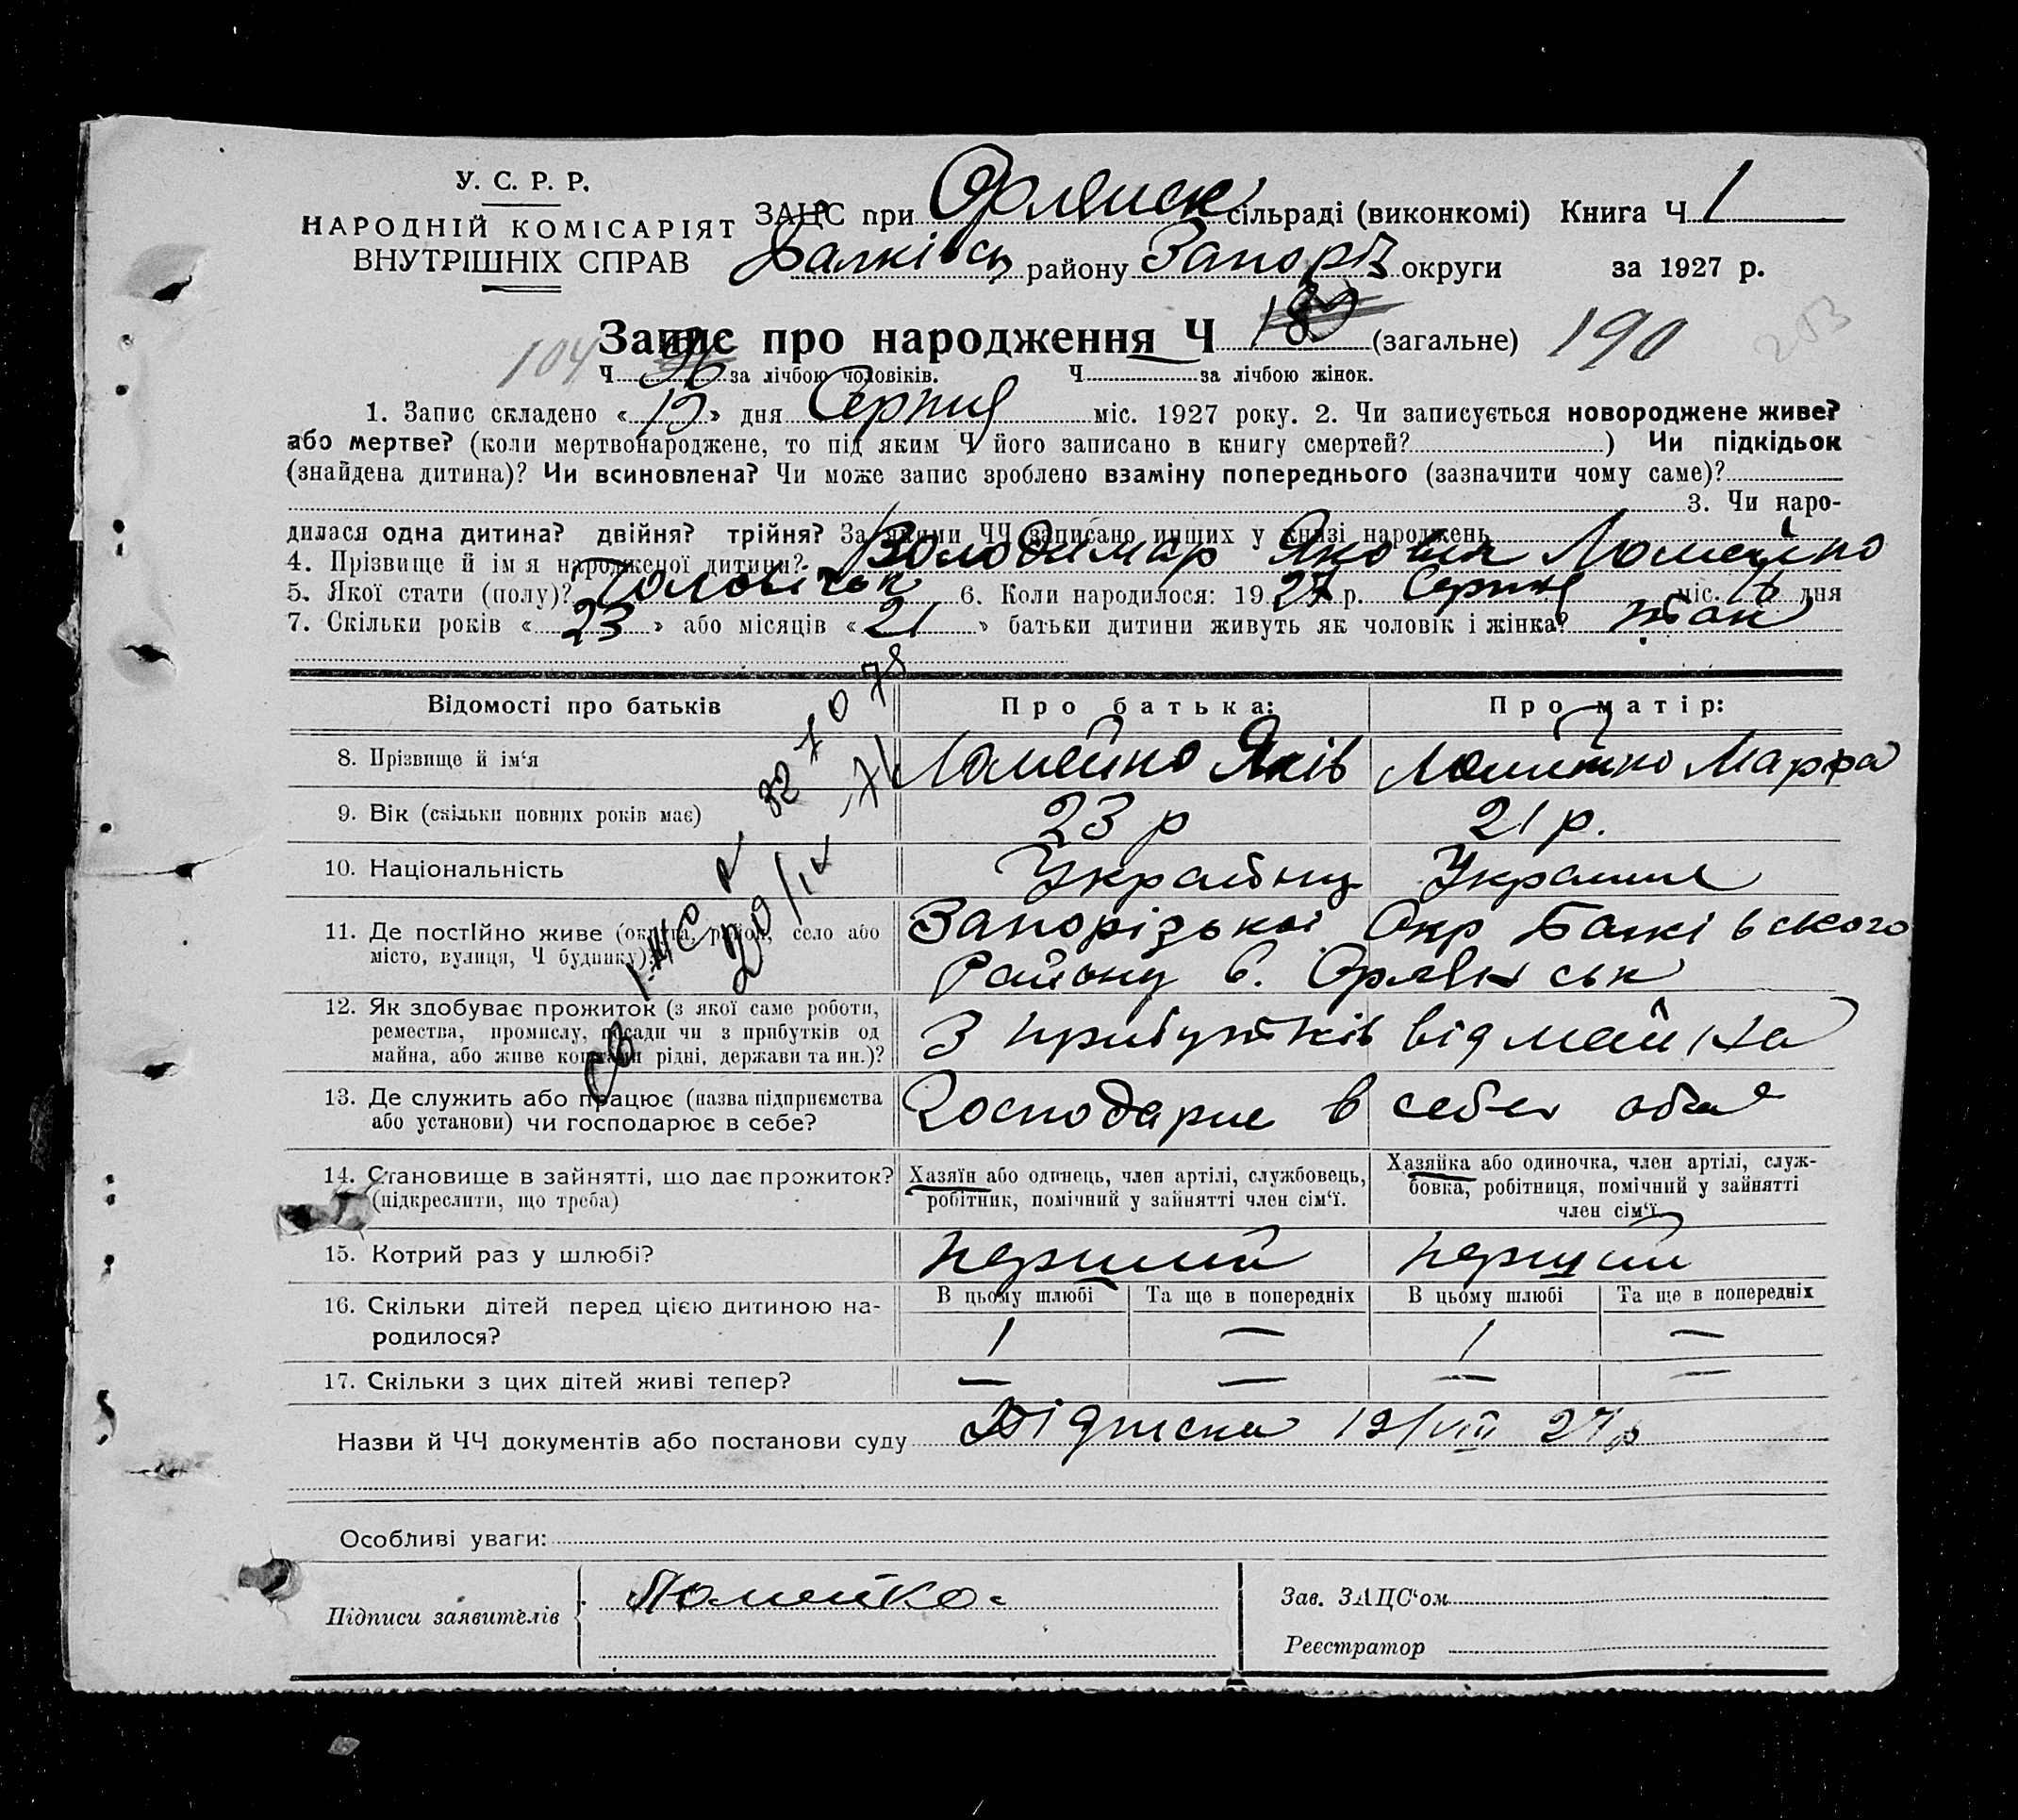 У. С. Р. Р.
НАРОДНІЙ КОМІСАРІЯТ
ВНУТРІШНІХ СПРАВ
ЗАЦС при Орлянск сільраді (виконкомі) Книга Ч. 1
району Запоріз округи за 1927 р.
Запис про народження Ч (загальне) 190
203
104 Ч. за лічбою чоловіків. Ч. за лічбою жінок.
1. Запис складено « » дня Серпня міс. 1927 року. 2. Чи записується новороджене живе?
або мертве? (коли мертвонароджене, то під яким Ч його записано в книгу смертей?) Чи підкідьок
(знайдена дитина)? Чи всиновлена? Чи може запис зроблено взаміну попереднього (зазначити чому саме)?
3. Чи наро-
дилася одна дитина? двійня? трійня? За якими ЧЧ записано инших у книзі народжень
4. Прізвище й ім я народженої дитини? Володимар Яковик Ломейко
5. Якої стати (полу)? 6. Коли народилося: 1927 р. Серпня міс. дня
7. Скільки років « 23 » або місяців « 21 » батьки дитини живуть як чоловік і жінка? так
Відомості про батьків Про батька: Про матір:
8. Прізвище й ім‘я Ломейко Яків Ломейко Марфа
9. Вік (скільки повних років має) 23 р 21 р.
10. Національність Українц Украинка
11. Де постійно живе (округа, район, село або Запорізької Окр Балківського
місто, вулиця, Ч будинку). Району с. Орлянськ
12. Як здобуває прожиток (з якої саме роботи,
ремества, промислу, посади чи з прибутків од З прибутків від майна
майна, або живе коштами рідні, держави та ин.)?
13. Де служить або працює (назва підприємства Господарює в себе обоє
або установи) чи господарює в себе?
14. Становище в зайнятті, що дає прожиток? Хазяїн або одинець, член артілі, службовець, Хазяйка або одиночка, член артілі, служ-
(підкреслити, що треба) робітник, помічний у зайнятті член сім‘ї. бовка, робітниця, помічний у зайнятті
член сім‘ї.
15. Котрий раз у шлюбі? перший перший
16. Скільки дітей перед цією дитиною на- В цьому шлюбі Та ще в попередніх В цьому шлюбі Та ще в попередніх
родилося? 1 — 1 —
17. Скільки з цих дітей живі тепер? — — — —
Назви й ЧЧ документів або постанови суду Підписка 12/VIII 27 р
Особливі уваги:
Підписи заявителів Ломейко.
Зав. ЗАЦС‘ом
Реєстратор